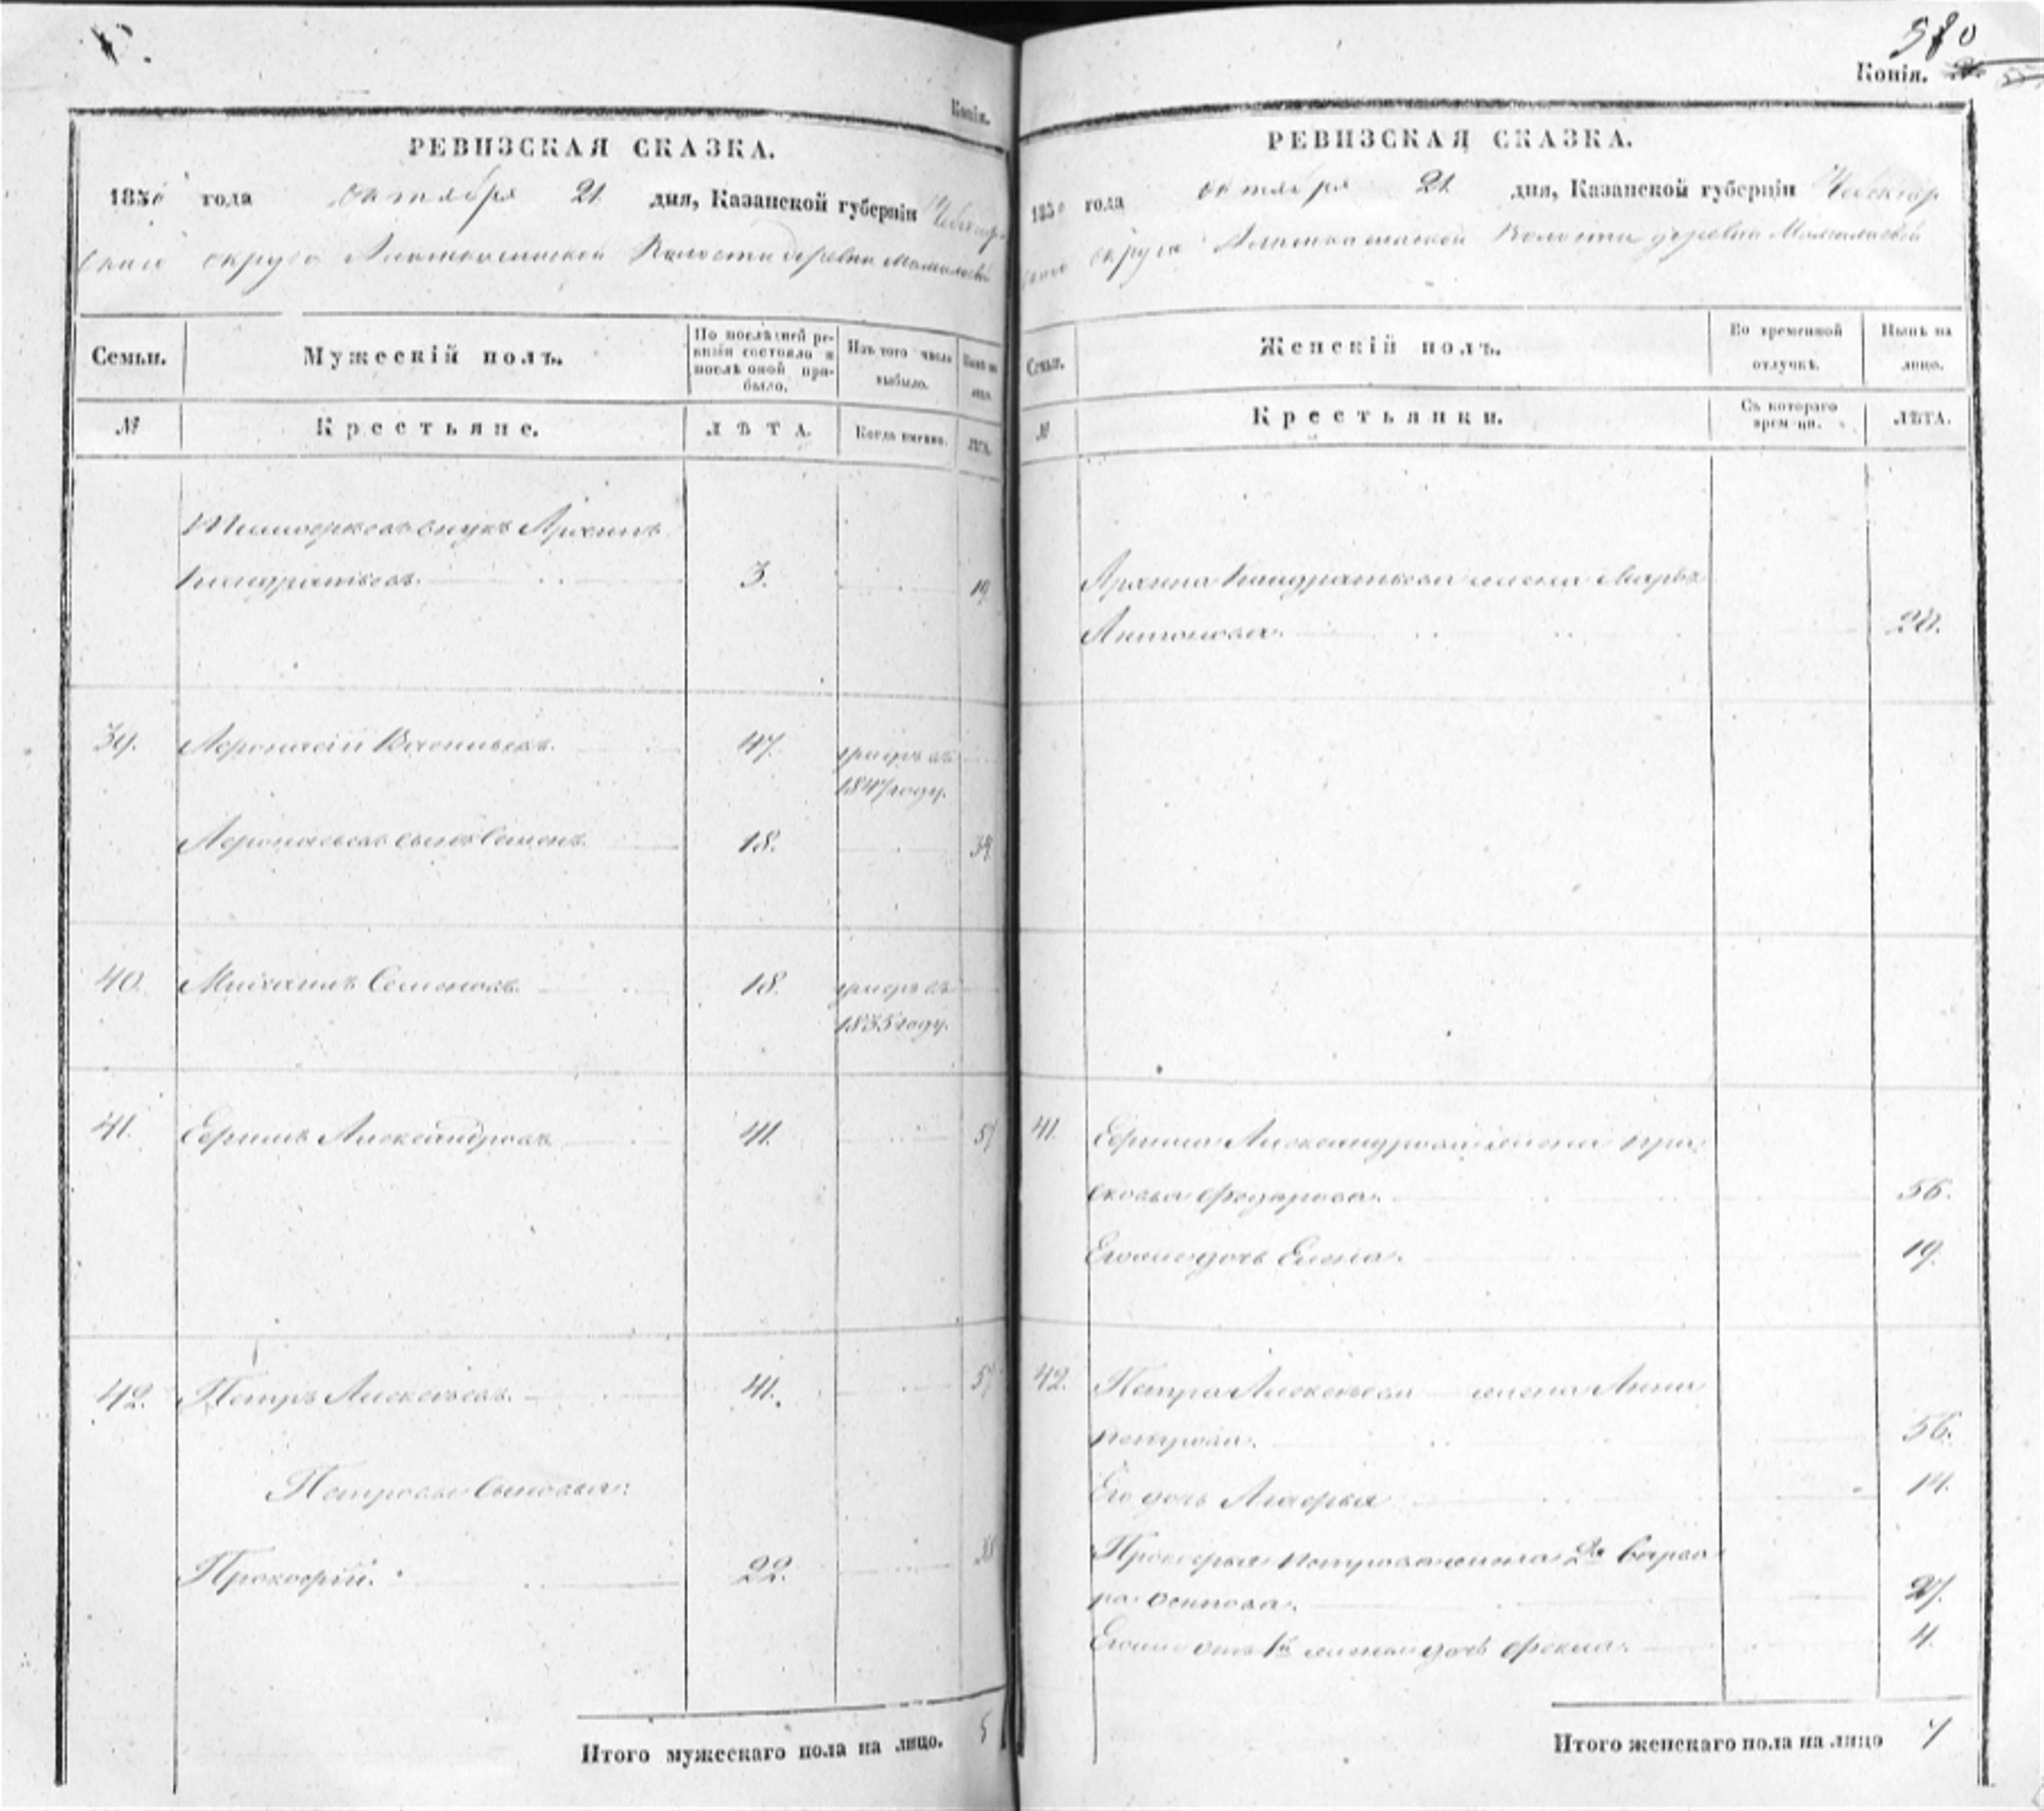 580
Копія.
Копія.
РЕВИЗСКАЯ СКАЗКА.
1850 года октября 21 дня, Казанской губерніи Чебоксар-
скаго округа Волости деревни
Семьи.
Мужескій полъ.
По послѣдней ре-
визіи состояло и
послѣ оной при-
было.
Изъ того числа
выбыло.
Нынѣ на
лицо.
№
Крестьяне.
ЛѢТА.
Когда именно.
ЛѢТА.
внукъ Архипъ
Кандратьевъ. 3. 19
39. Афонасій Васильевъ. 47. умеръ въ
1847 году.
Афонасьевъ сынъ Семенъ. 18. 34
40. Михаилъ Семеновъ. 18. умеръ въ
1835 году.
41. Ефимъ Александровъ 41. 57
42. Петръ Алексѣевъ. 41. 57
Петровы сыновья:
Прокофій. 22. 38
Итого мужескаго пола на лицо. 5
РЕВИЗСКАЯ СКАЗКА.
1850 года октября 21 дня, Казанской губерніи Чебоксар
скаго округа Волости деревни
Семьи.
Женскій полъ.
Во временной
отлучкѣ.
Нынѣ на
лицо.
№
Крестьянки.
Съ котораго
времени.
ЛѢТА.
Архипа Кандратьева жена Марья
Антонова. 20.
41. Ефима Александрова жена Пра-
сковья Федарова. 56.
Егоже дочь Елена. 19.
42. Петра Алексѣева жена Анна
Петрова. 56.
Его дочь 14.
Прокофья Петрова жена 2я Варва
ра Осипова. 27.
Егоже отъ 1й жены дочь Фекла. 4.
Итого женскаго пола на лицо 7